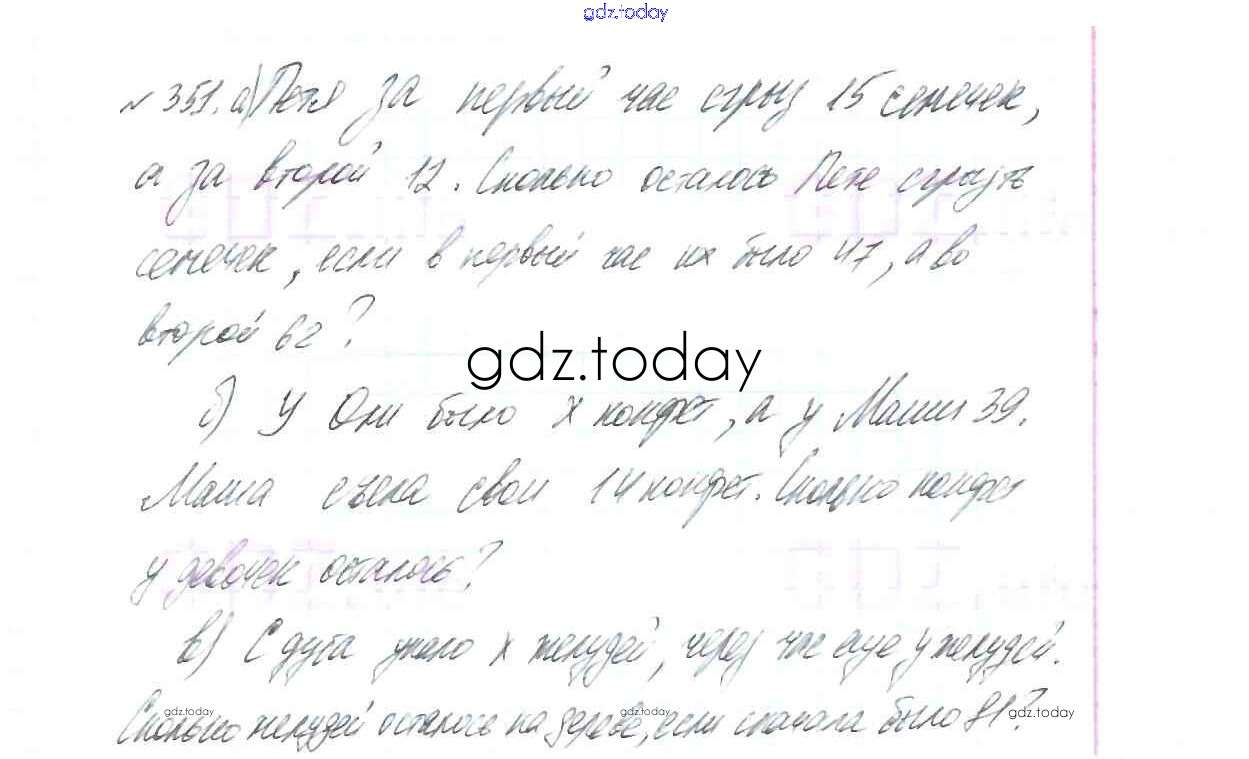 gdz.today
№ 351. а) Петя за первый час сгрыз 15 семечек,
а за второй 12. Сколько осталось Пете сгрызть
семечек, если в первый час их было 47, а во
второй 62?
gdz.today
б) У Они было x конфет, а у Маши 39.
Маша съела свои 14 конфет. Сколько конфет
у девочек осталось?
в) С дуба упало x желудей, через час еще y желудей.
gdz.today gdz.today gdz.today
Сколько желудей осталось на дереве, если сначала было 81?